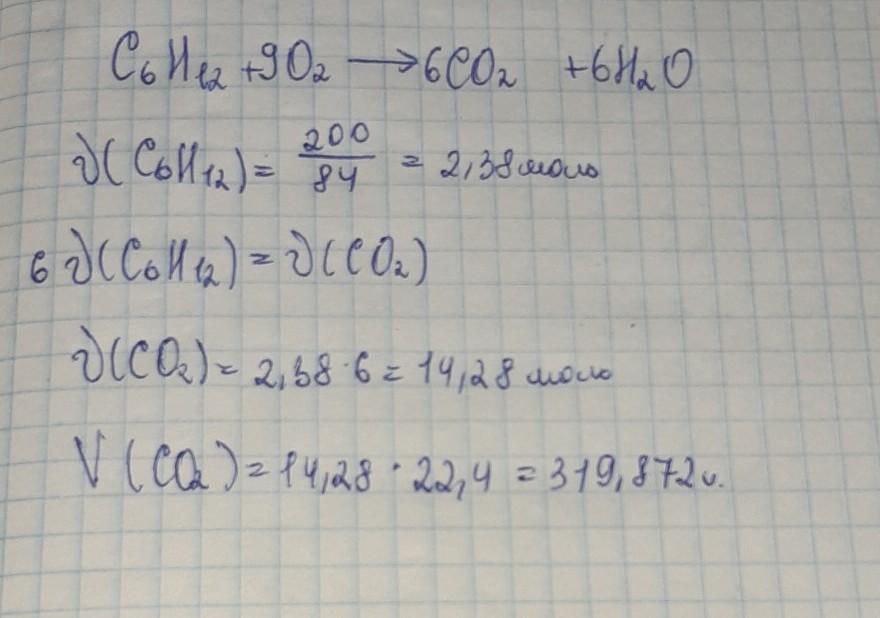 C₆H₁₂ + 9O₂ → 6CO₂ + 6H₂O
ν(C₆H₁₂) = 200/84 = 2,38 моль
6 ν(C₆H₁₂) = ν(CO₂)
ν(CO₂) = 2,38 · 6 = 14,28 моль
V(CO₂) = 14,28 · 22,4 = 319,872 л.